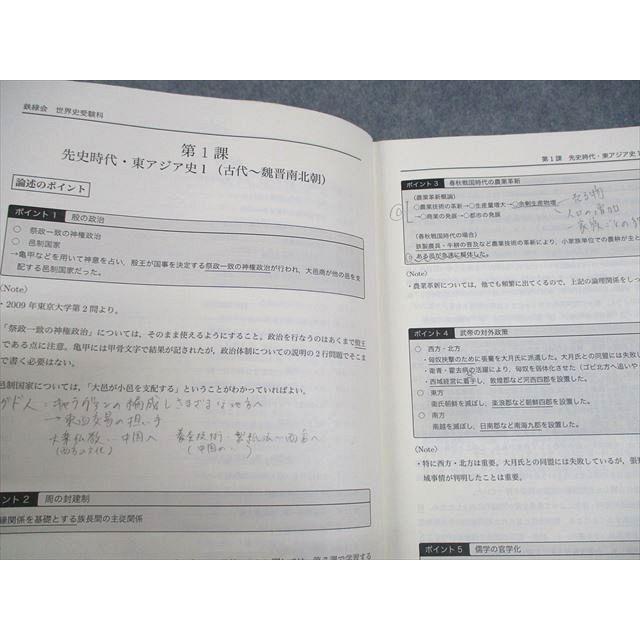 鉄緑会　世界史受験科
第１課
先史時代・東アジア史１（古代～魏晋南北朝）
論述のポイント
ポイント１　殷の政治
○　祭政一致の神権政治
○　邑制国家
→亀甲などを用いて神意を占い、殷王が国事を決定する祭政一致の神権政治が行われ、大邑商が他の邑を支
配する邑制国家だった。
(Note)
・2009 年東京大学第２問より。
「祭政一致の神権政治」については、そのまま使えるようにすること。政治を行なうのはあくまで殷王
である点に注意。亀甲には甲骨文字で結果が記されたが、政治体制についての説明の２行問題でそこま
で書く必要はない。
邑制国家については、「大邑が小邑を支配する」ということがわかっていればよい。
→東西交易の担い手
中国へ
(西方の文化)
製紙法→西方へ
ント２　周の封建制
縁関係を基礎とする族長間の主従関係
第１課　先史時代・東アジア史１
ポイント３　春秋戦国時代の農業革新
(農業革新概論)
○農業技術の革新→○生産量増大→○余剰生産物増
→○商業の発展→○都市の発展
(春秋戦国時代の場合)
鉄製農具・牛耕の普及など農業技術の革新により、小家族単位での農耕が主と
ある邑が急速に解体した。
(Note)
・農業革新については、他でも頻繁に出てくるので、上記の論理関係をしっ
ポイント４　武帝の対外政策
○　西方・北方
・匈奴挟撃のために張騫を大月氏に派遣した。大月氏との同盟には失敗
・衛青・霍去病の活躍により、匈奴を弱体化させた（ゴビ北方へ追いや
・西域経営に着手し、敦煌郡など河西四郡を設置した。
○　東方
衛氏朝鮮を滅ぼし、楽浪郡など朝鮮四郡を設置した。
○　南方
南越を滅ぼし、日南郡など南海九郡を設置した。
(Note)
・特に西方・北方は重要。大月氏との同盟には失敗しているが、張騫
域事情が判明したことは重要。
ポイント５　儒学の官学化